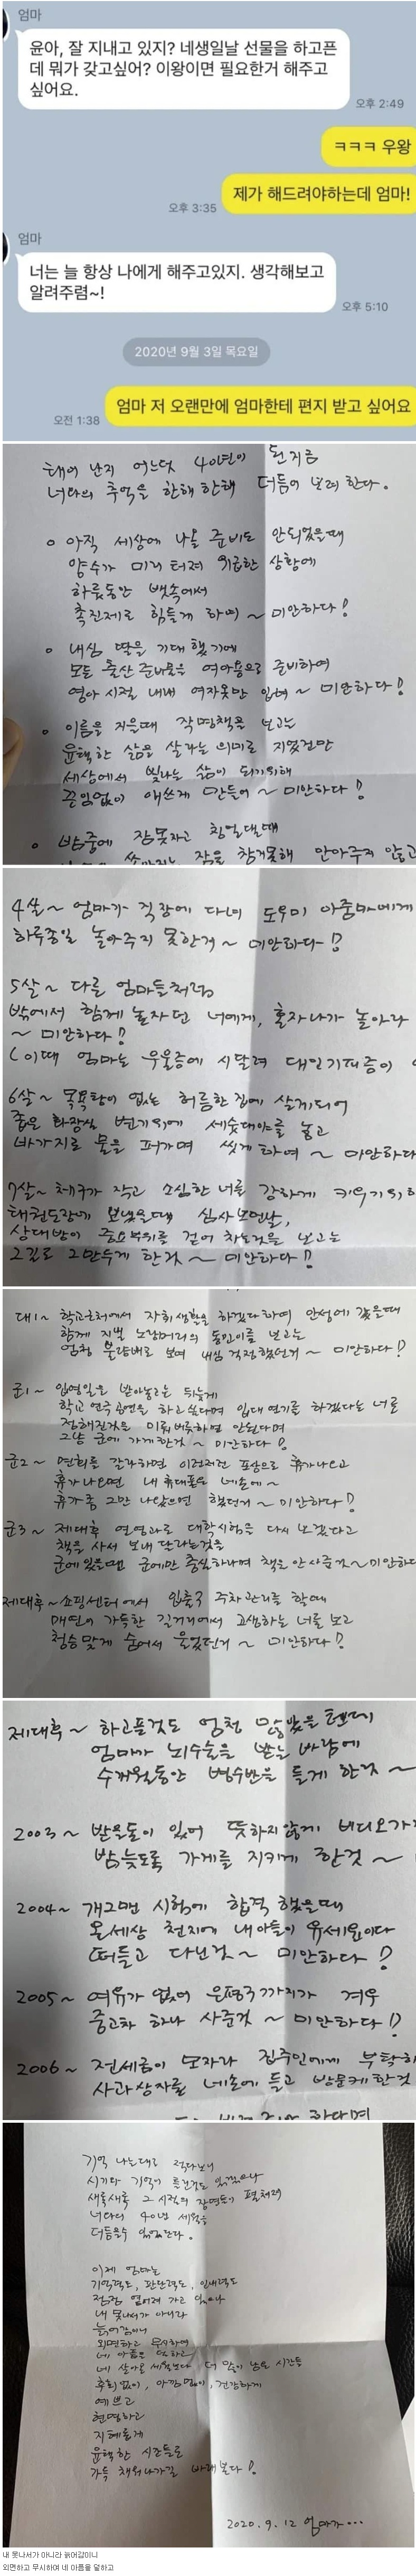 엄마
윤아, 잘 지내고 있지? 네생일날 선물을 하고픈
데 뭐가 갖고싶어? 이왕이면 필요한거 해주고
싶어요.
오후 2:49
ㅋㅋㅋ 우왕
제가 해드려야하는데 엄마!
오후 3:35
엄마
너는 늘 항상 나에게 해주고있지. 생각해보고
알려주렴~!
오후 5:10
2020년 9월 3일 목요일
엄마 저 오랜만에 엄마한테 편지 받고 싶어요
오전 1:38
태어 난지 어느덧 40년이 된 지금
너와의 추억을 한해 한해 더듬어 보려 한다.
o 아직 세상에 나올 준비도 안되었을때
양수가 미리 터져 위급한 상황에
하룻동안 뱃속에서
촉진제로 힘들게 하여 ~ 미안하다!
o 내심 딸을 기대 했기에
모든 출산 준비물을 여아용으로 준비하여
영아 시절 내내 여자옷만 입혀 ~ 미안하다!
o 이름을 지을때 작명책을 보고는
윤택한 삶을 살라는 의미로 지었건만
세상에서 빛나는 삶이 되기위해
끈임없이 애쓰게 만들어 ~ 미안하다!
o 밤중에 잠못자고 칭얼댈때
쏟아지는 잠을 참지못해 안아주지 않고
4살 ~ 엄마가 직장에 다녀 도우미 아줌마에게
하루종일 놀아주지 못한거 ~ 미안하다!
5살 ~ 다른 엄마들처럼
밖에서 함께 놀자던 너에게, 혼자나가 놀아라
~ 미안하다!
(이때 엄마는 우울증에 시달려 대인기피증이
6살 ~ 목욕탕이 없는 허름한 집에 살게되어
좁은 화장실 변기위에 세숫대야를 놓고
바가지로 물을 퍼가며 씻게 하여 ~ 미안하다
7살 ~ 체구가 작고 소심한 너를 강하게 키우기 위해
태권도장에 보냈을때 심사 보던날,
상대방이 중요부위를 걷어 차는것을 보고는
그길로 그만두게 한것 ~ 미안하다!
대1 ~ 학교근처에서 자취생활을 하겠다하여 안성에 갔을때
함께 지낼 노랑머리의 동민이를 보고는
엄청 불량배로 보여 내심 걱정했던거 ~ 미안하다!
군1 ~ 입영일을 받아놓고는 뒤늦게
학교 연극공연을 하고싶다며 입대 연기를 하겠다는 너를
정해진것을 미뤄 버릇하면 안된다며
그냥 군에 가게한것 ~ 미안하다!
군2 ~ 면회를 갈라하면 이런저런 포상으로 휴가나오고
휴가나오면 내 휴대폰은 네손에 ~
휴가좀 그만 나왔으면 했던거 ~ 미안하다!
군3 ~ 제대후 연영과로 대학시험을 다시 보겠다고
책을 사서 보내 달라는것을
군에 있을땐 군에만 충실하라며 책을 안사준것 ~ 미안하다
제대후 ~ 쇼핑센터에서 입출구 주차관리를 할때
매연이 가득한 길거리에서 고생하는 너를 보고
청승 맞게 숨어서 울었던거 ~ 미안하다!
제대후 ~ 하고픈것도 엄청 많았을 텐데
엄마가 뇌수술을 받는 바람에
수개월동안 병수발을 들게 한것 ~
2003 ~ 받을돈이 있어 뜻하지않게 비디오가
밤늦도록 가게를 지키게 한것 ~
2004 ~ 개그맨 시험에 합격 했을때
온세상 천지에 내아들이 유세윤이다
떠들고 다닌것 ~ 미안하다!
2005 ~ 여유가 없어 은평구까지가 겨우
중고차 하나 사준것 ~ 미안하다!
2006 ~ 전세금이 모자라 집주인에게 부탁하
사과상자를 네손에 들고 방문케한것
기억 나는대로 적다보니
시기와 기억이 틀린것도 있겠으나
새록새록 그 시절의 장면들이 펼쳐져
너와의 40년 세월을
더듬을수 있었단다.
이제 엄마는
기억력도, 판단력도, 인내력도
점점 옅어져 가고 있으나
내 못나서가 아니라
늙어감이니
외면하고 무시하여
네 아픔을 덜하고
네 살아온 세월보다 더 많이 남은 시간들
후회없이, 아낌없이, 건강하게
예쁘고
현명하고
지혜롭게
윤택한 시간들로
가득 채워나가길 바래본다!
2020. 9. 12 엄마가...
내 못나서가 아니라 늙어감이니
외면하고 무시하여 네 아픔을 덜하고